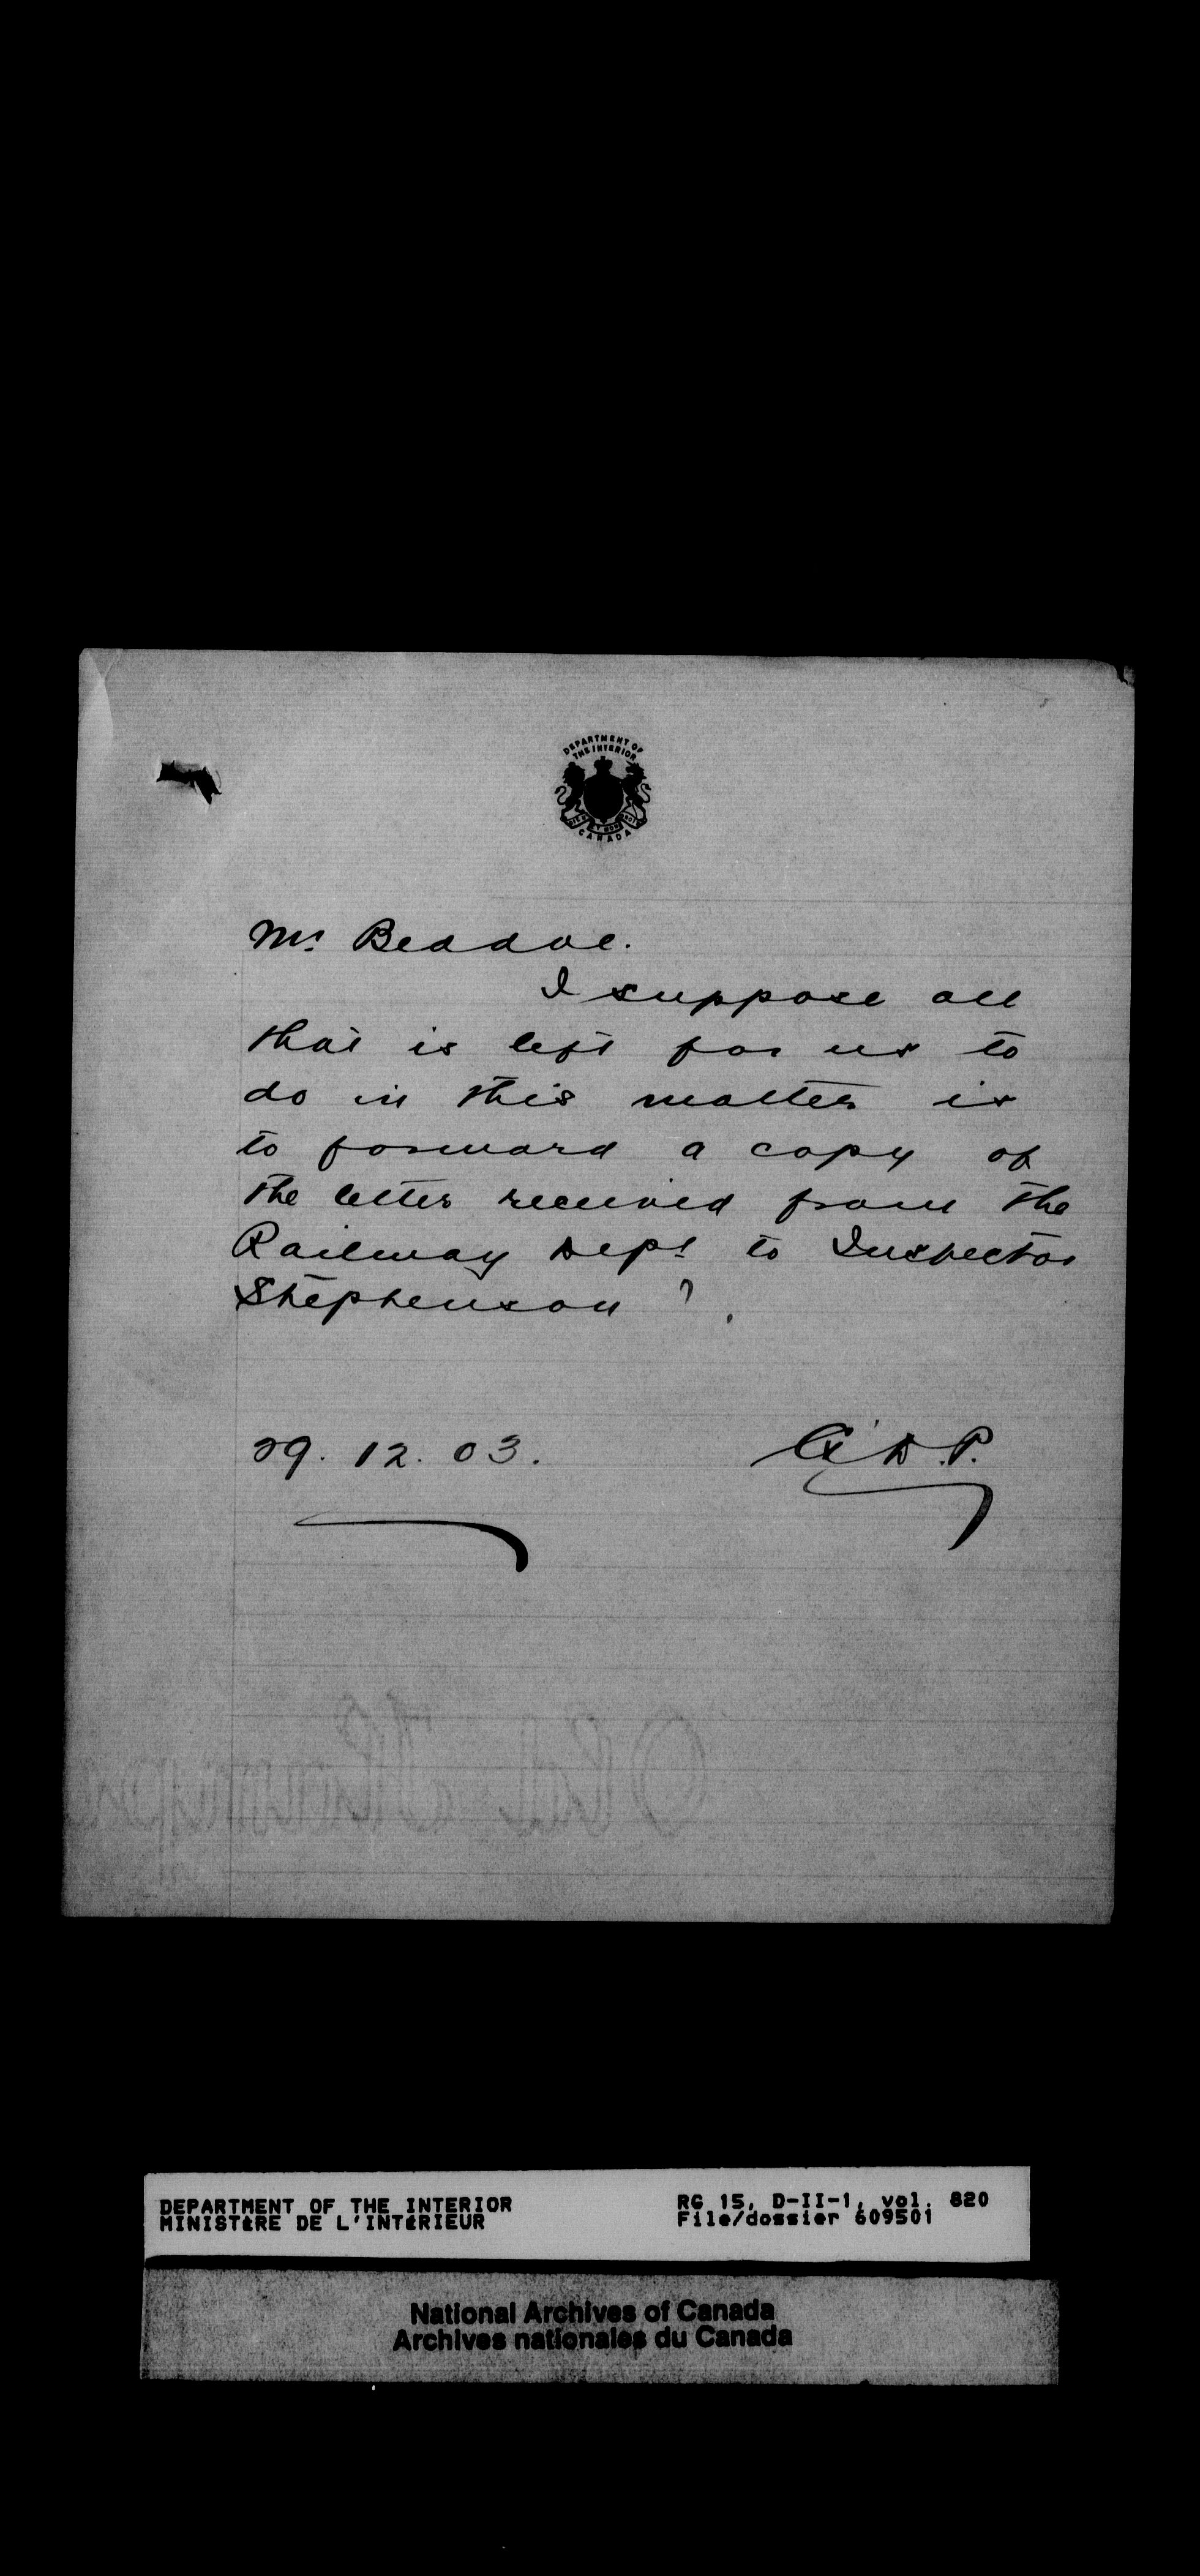 DEPARTMENT OF
THE INTERIOR
CANADA
Mr Beddoe.
I suppose all
that is left for us to
do in this matter is
to forward a copy of
the letter received from the
Railway Dept to Inspector
Stephenson ?
29. 12. 03.
G.D.P.
DEPARTMENT OF THE INTERIOR
MINISTÈRE DE L'INTÉRIEUR
RG 15, D-II-1, vol. 820
File/dossier 609501
National Archives of Canada
Archives nationales du Canada